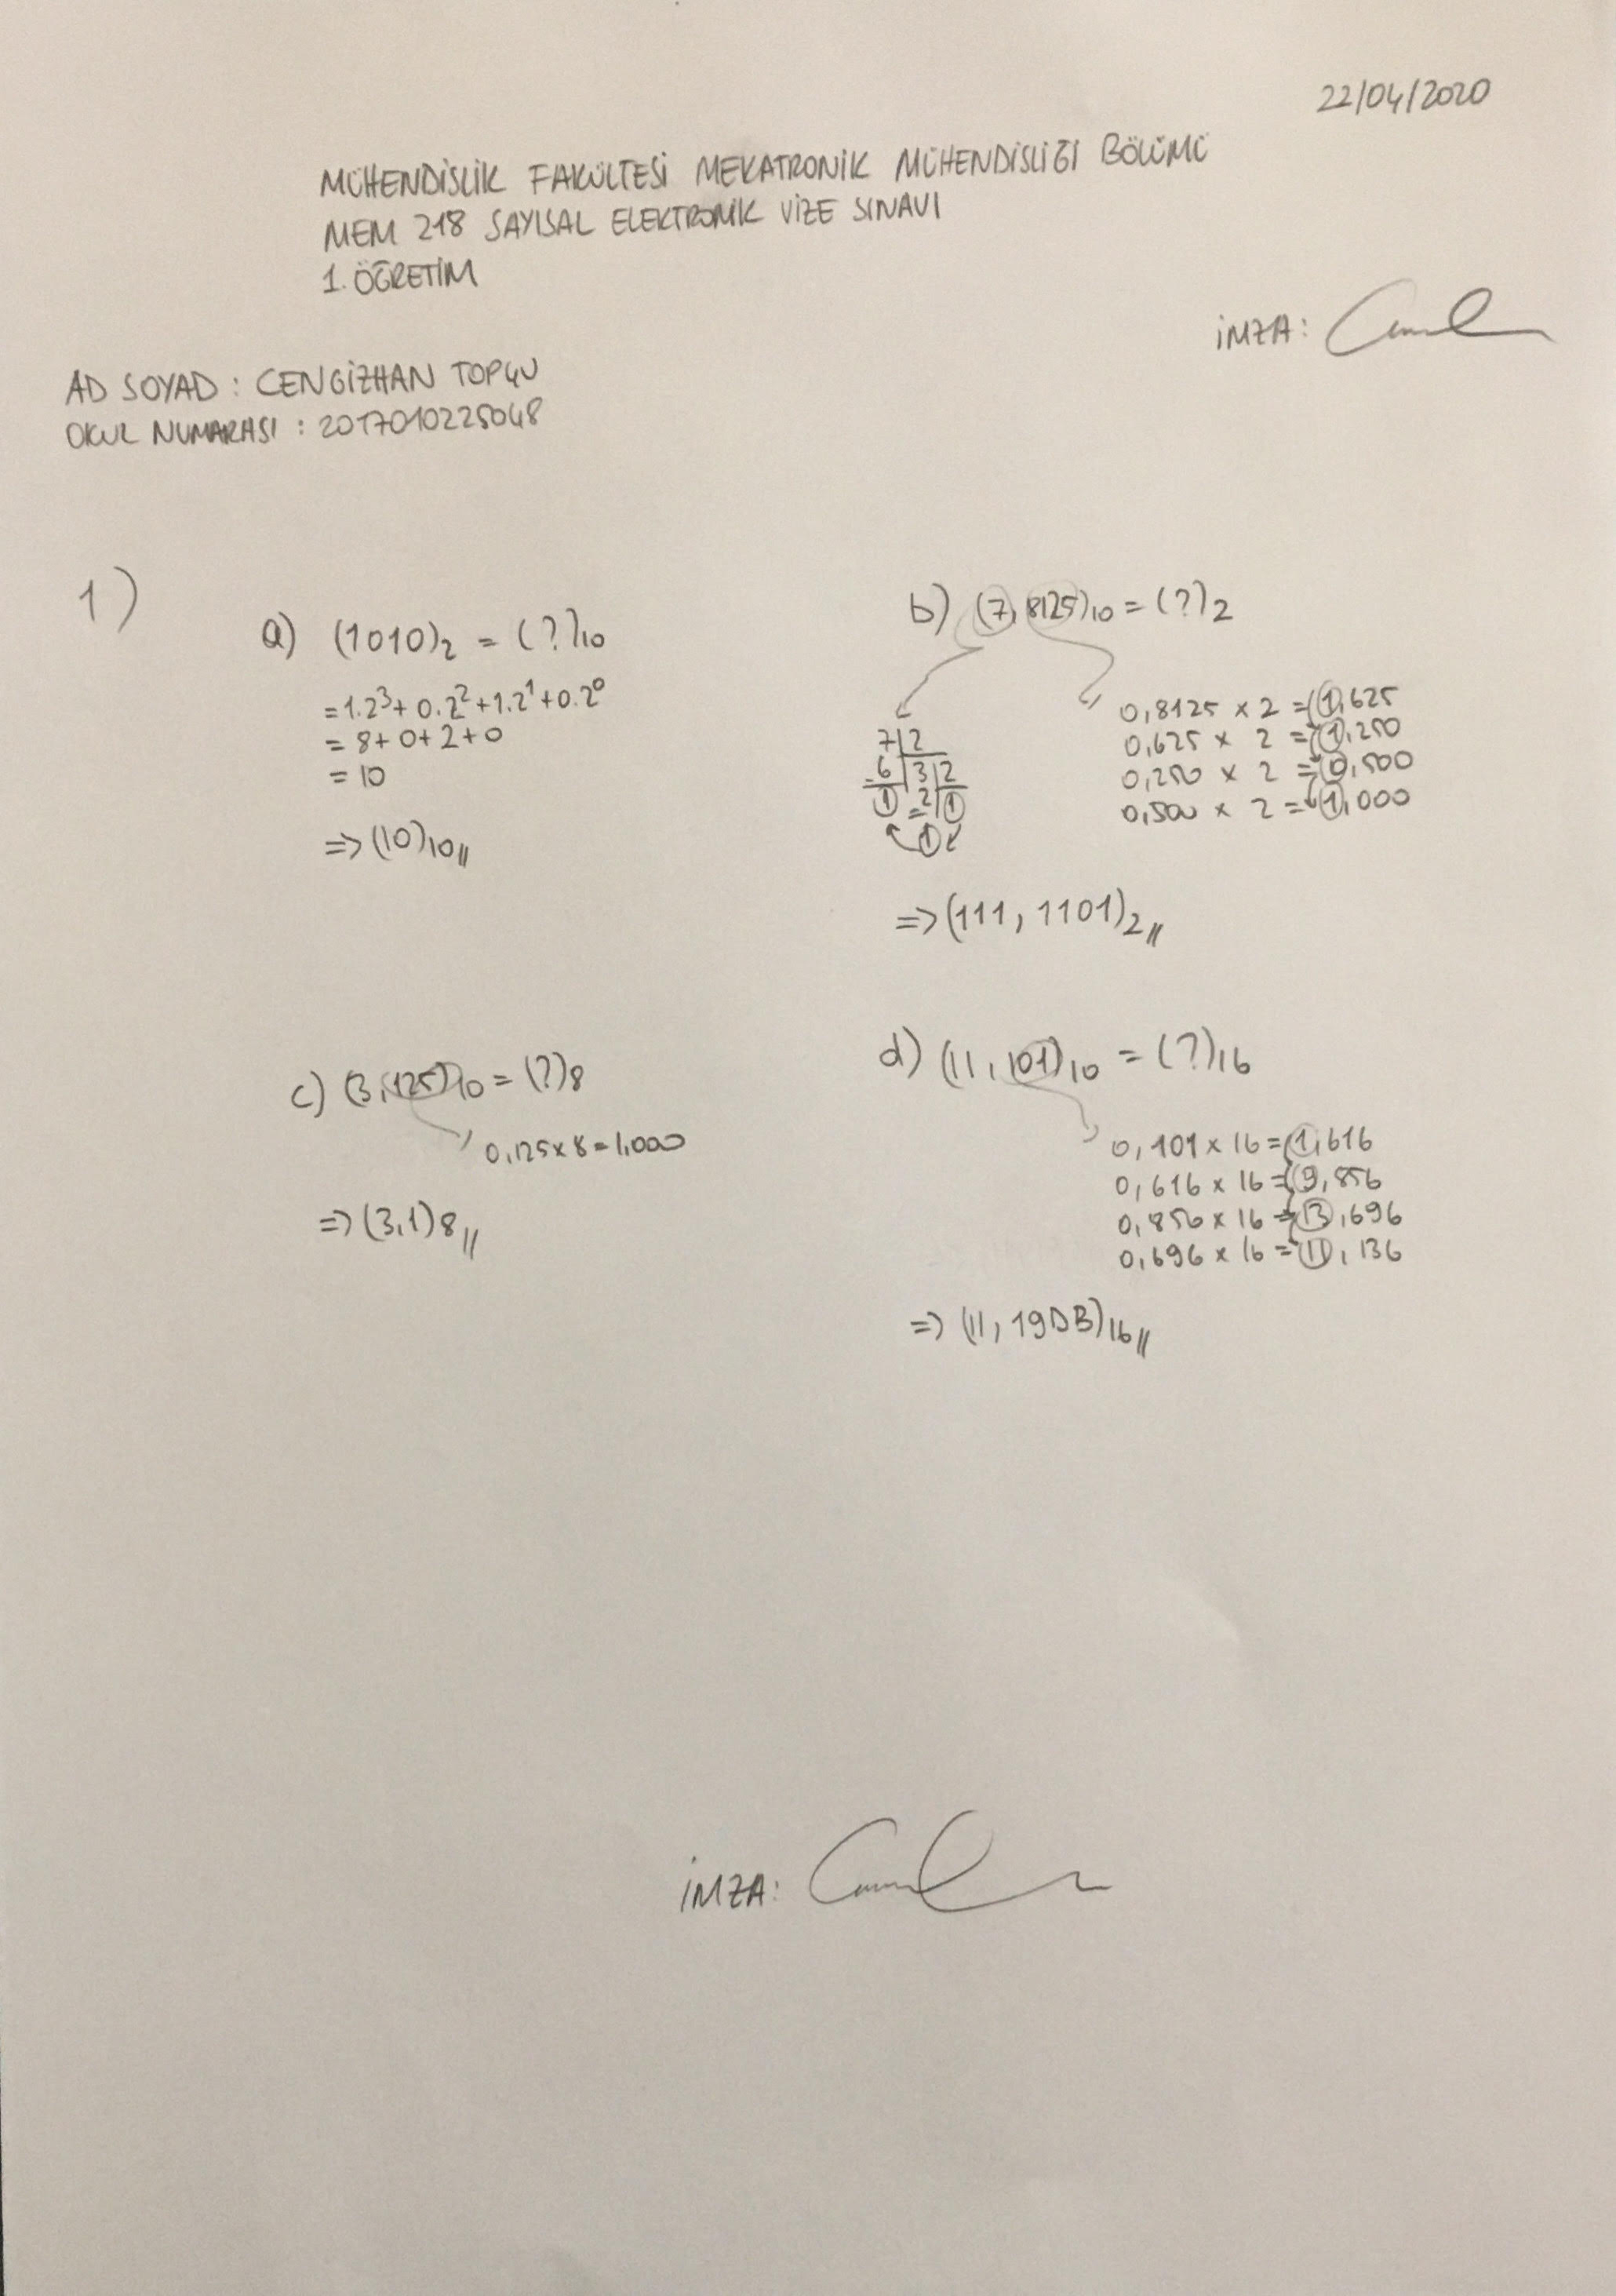 22/04/2020
MÜHENDİSLİK FAKÜLTESİ MEKATRONİK MÜHENDİSLİĞİ BÖLÜMÜ
MEM 218 SAYISAL ELEKTRONİK VİZE SINAVI
1. ÖĞRETİM
İMZA:
AD SOYAD : CENGİZHAN TOPÇU
OKUL NUMARASI : 2017010225048
1)
a) (1010)₂ = (?)₁₀
= 1.2³ + 0.2² + 1.2¹ + 0.2⁰
= 8 + 0 + 2 + 0
= 10
=> (10)₁₀//
b) (7,8125)₁₀ = (?)₂
7|2
-6|3|2
1 -2|1
1
0,8125 x 2 = 1,625
0,625 x 2 = 1,250
0,250 x 2 = 0,500
0,500 x 2 = 1,000
=> (111, 1101)₂//
c) (3,125)₁₀ = (?)₈
0,125 x 8 = 1,000
=> (3,1)₈//
d) (11,101)₁₀ = (?)₁₆
0,101 x 16 = 1,616
0,616 x 16 = 9,856
0,856 x 16 = 13,696
0,696 x 16 = 11,136
=> (11, 19DB)₁₆//
İMZA: